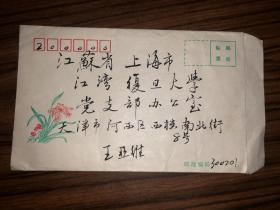 200000
贴邮
票处
江蘇省 上海市
江湾 復旦大學
党支部办公室
天津市河西区西楼南北街
8号
王亚雄
邮政编码 300201